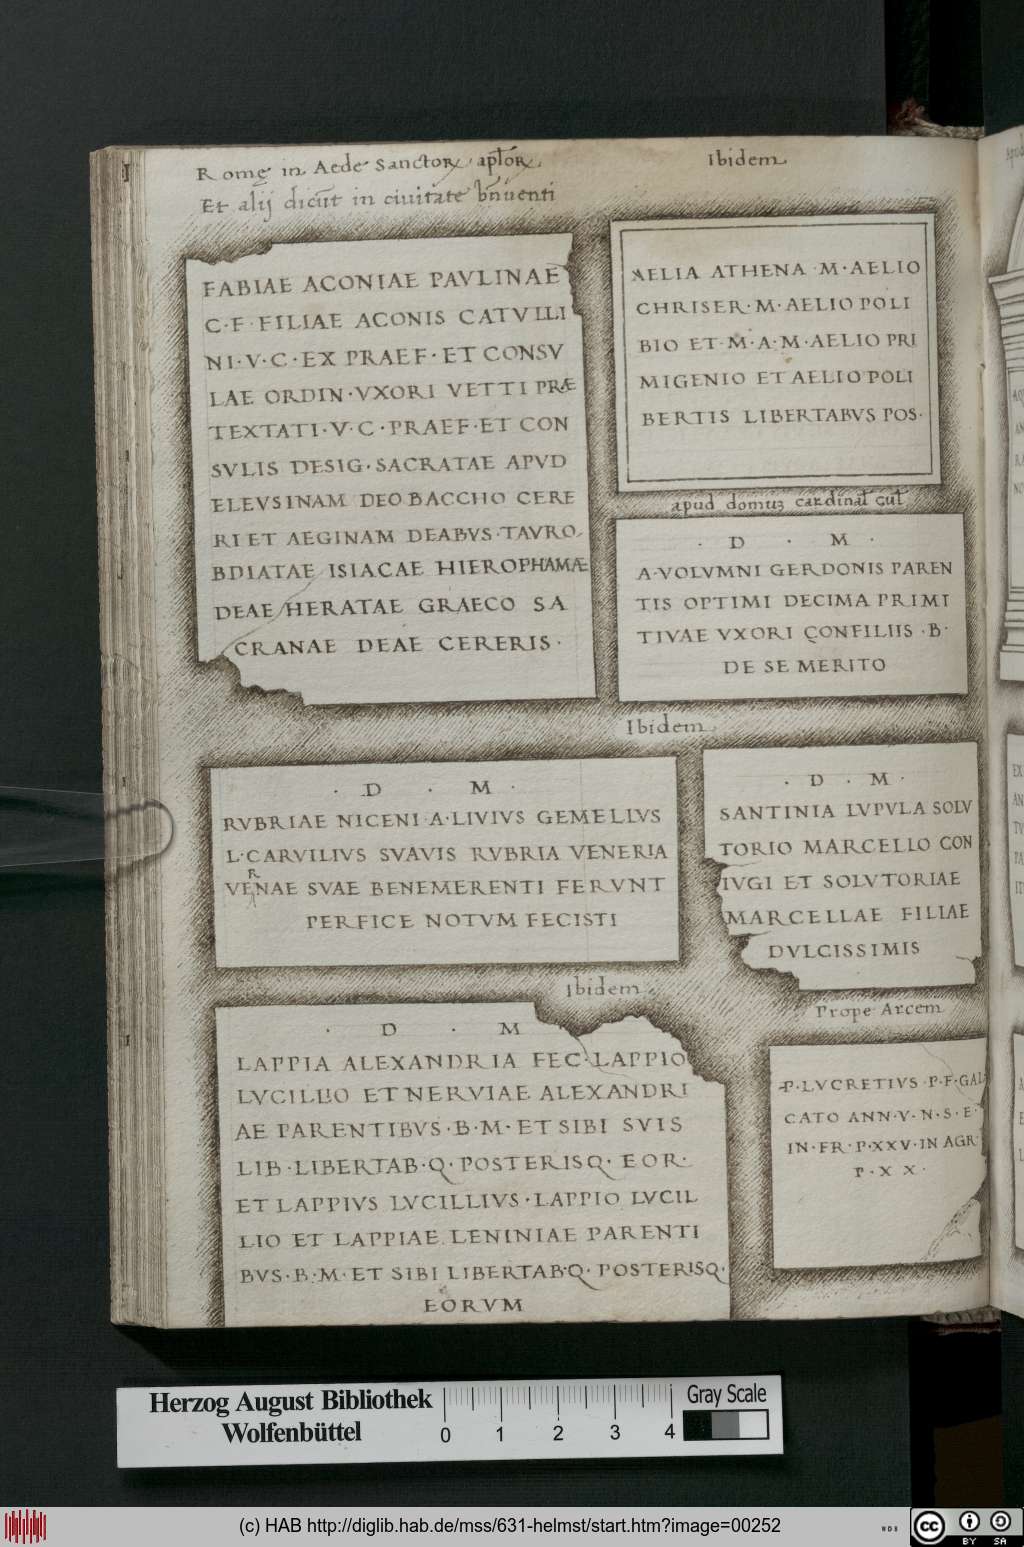 Rome in Aede Sanctor aptor.
Et alij dicut in ciuitate bnuenti
FABIAE ACONIAE PAVLINAE
C·F·FILIAE ACONIS CATVLLI
NI·V·C·EX PRAEF·ET CONSV
LAE ORDIN·VXORI VETTI PRÆ
TEXTATI·V·C·PRAEF·ET CON
SVLIS DESIG·SACRATAE APVD
ELEVSINAM DEO BACCHO CERE
RI ET AEGINAM DEABVS·TAVRO
BDIATAE ISIACAE HIEROPHAMÆ
DEAE HERATAE GRAECO SA
CRANAE DEAE CERERIS·
Ibidem
AELIA ATHENA·M·AELIO
CHRISER·M·AELIO POLI
BIO ET·M·A·M·AELIO PRI
MIGENIO ET AELIO POLI
BERTIS LIBERTABVS POS·
apud domuȝ cardinal Gul
· D · M ·
A·VOLVMNI GERDONIS PAREN
TIS OPTIMI DECIMA PRIMI
TIVAE VXORI CONFILIIS·B·
DE SE MERITO
Ibidem
· D · M ·
RVBRIAE NICENI·A·LIVIVS GEMELLVS
L·CARVILIVS SVAVIS RVBRIA VENERIA
R
VENAE SVAE BENEMERENTI FERVNT
PERFICE NOTVM FECISTI
· D · M ·
SANTINIA LVPVLA SOLV
TORIO MARCELLO CON
IVGI ET SOLVTORIAE
MARCELLAE FILIAE
DVLCISSIMIS
Ibidem
· D · M
LAPPIA ALEXANDRIA FEC·LAPPIO
LVCILLIO ET NERVIAE ALEXANDRI
AE PARENTIBVS·B·M·ET SIBI SVIS
LIB·LIBERTAB·Q·POSTERISQ·EOR·
ET LAPPIVS LVCILLIVS·LAPPIO LVCIL
LIO ET LAPPIAE LENINIAE PARENTI
BVS·B·M·ET SIBI LIBERTAB·Q·POSTERISQ·
EORVM
Prope Arcem
P·LVCRETIVS·P·F·GAL
CATO ANN·V·N·S·E·
IN·FR·P·XXV·IN AGR·
P·X X·
Herzog August Bibliothek
Wolfenbüttel
0 1 2 3 4
Gray Scale
(c) HAB http://diglib.hab.de/mss/631-helmst/start.htm?image=00252
WDB
cc BY SA